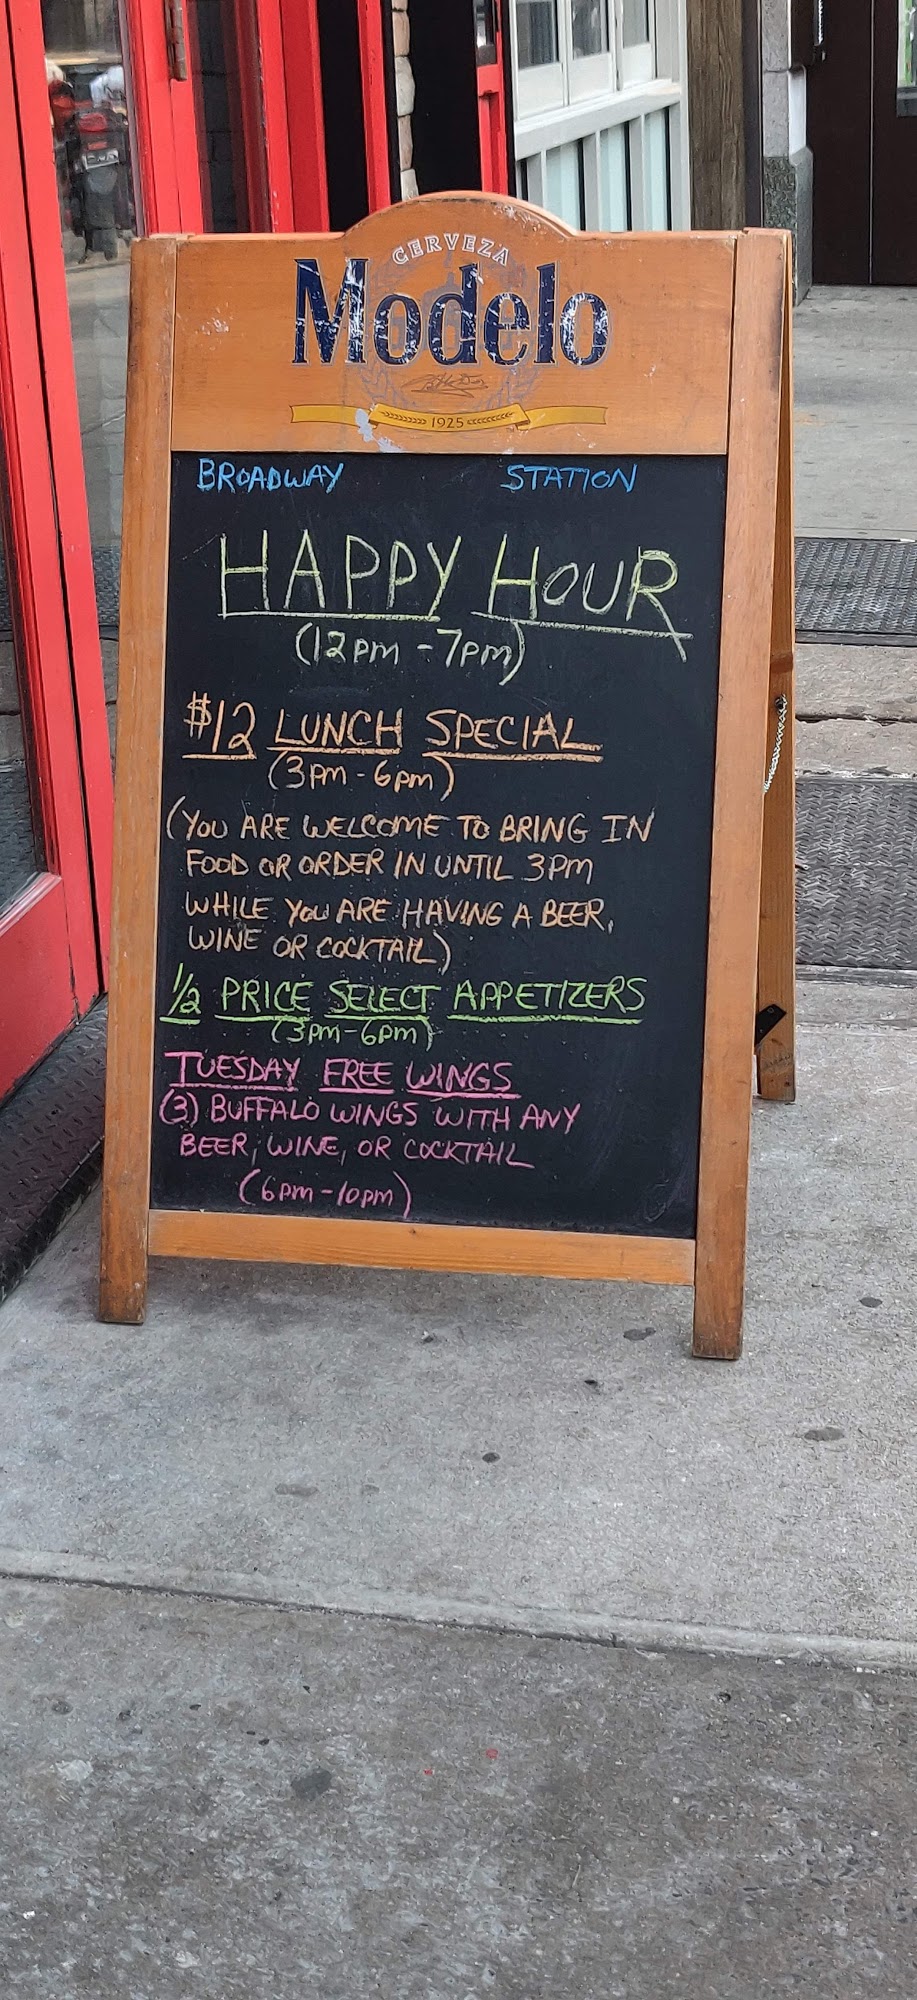 CERVEZA
Modelo
1925
BROADWAY STATION
HAPPY HOUR
(12pm - 7pm)
$12 LUNCH SPECIAL
(3pm - 6pm)
(YOU ARE WELCOME TO BRING IN
FOOD OR ORDER IN UNTIL 3PM
WHILE YOU ARE HAVING A BEER,
WINE OR COCKTAIL)
1/2 PRICE SELECT APPETIZERS
(3pm-6pm)
TUESDAY FREE WINGS
(3) BUFFALO WINGS WITH ANY
BEER, WINE, OR COCKTAIL
(6pm-10pm)